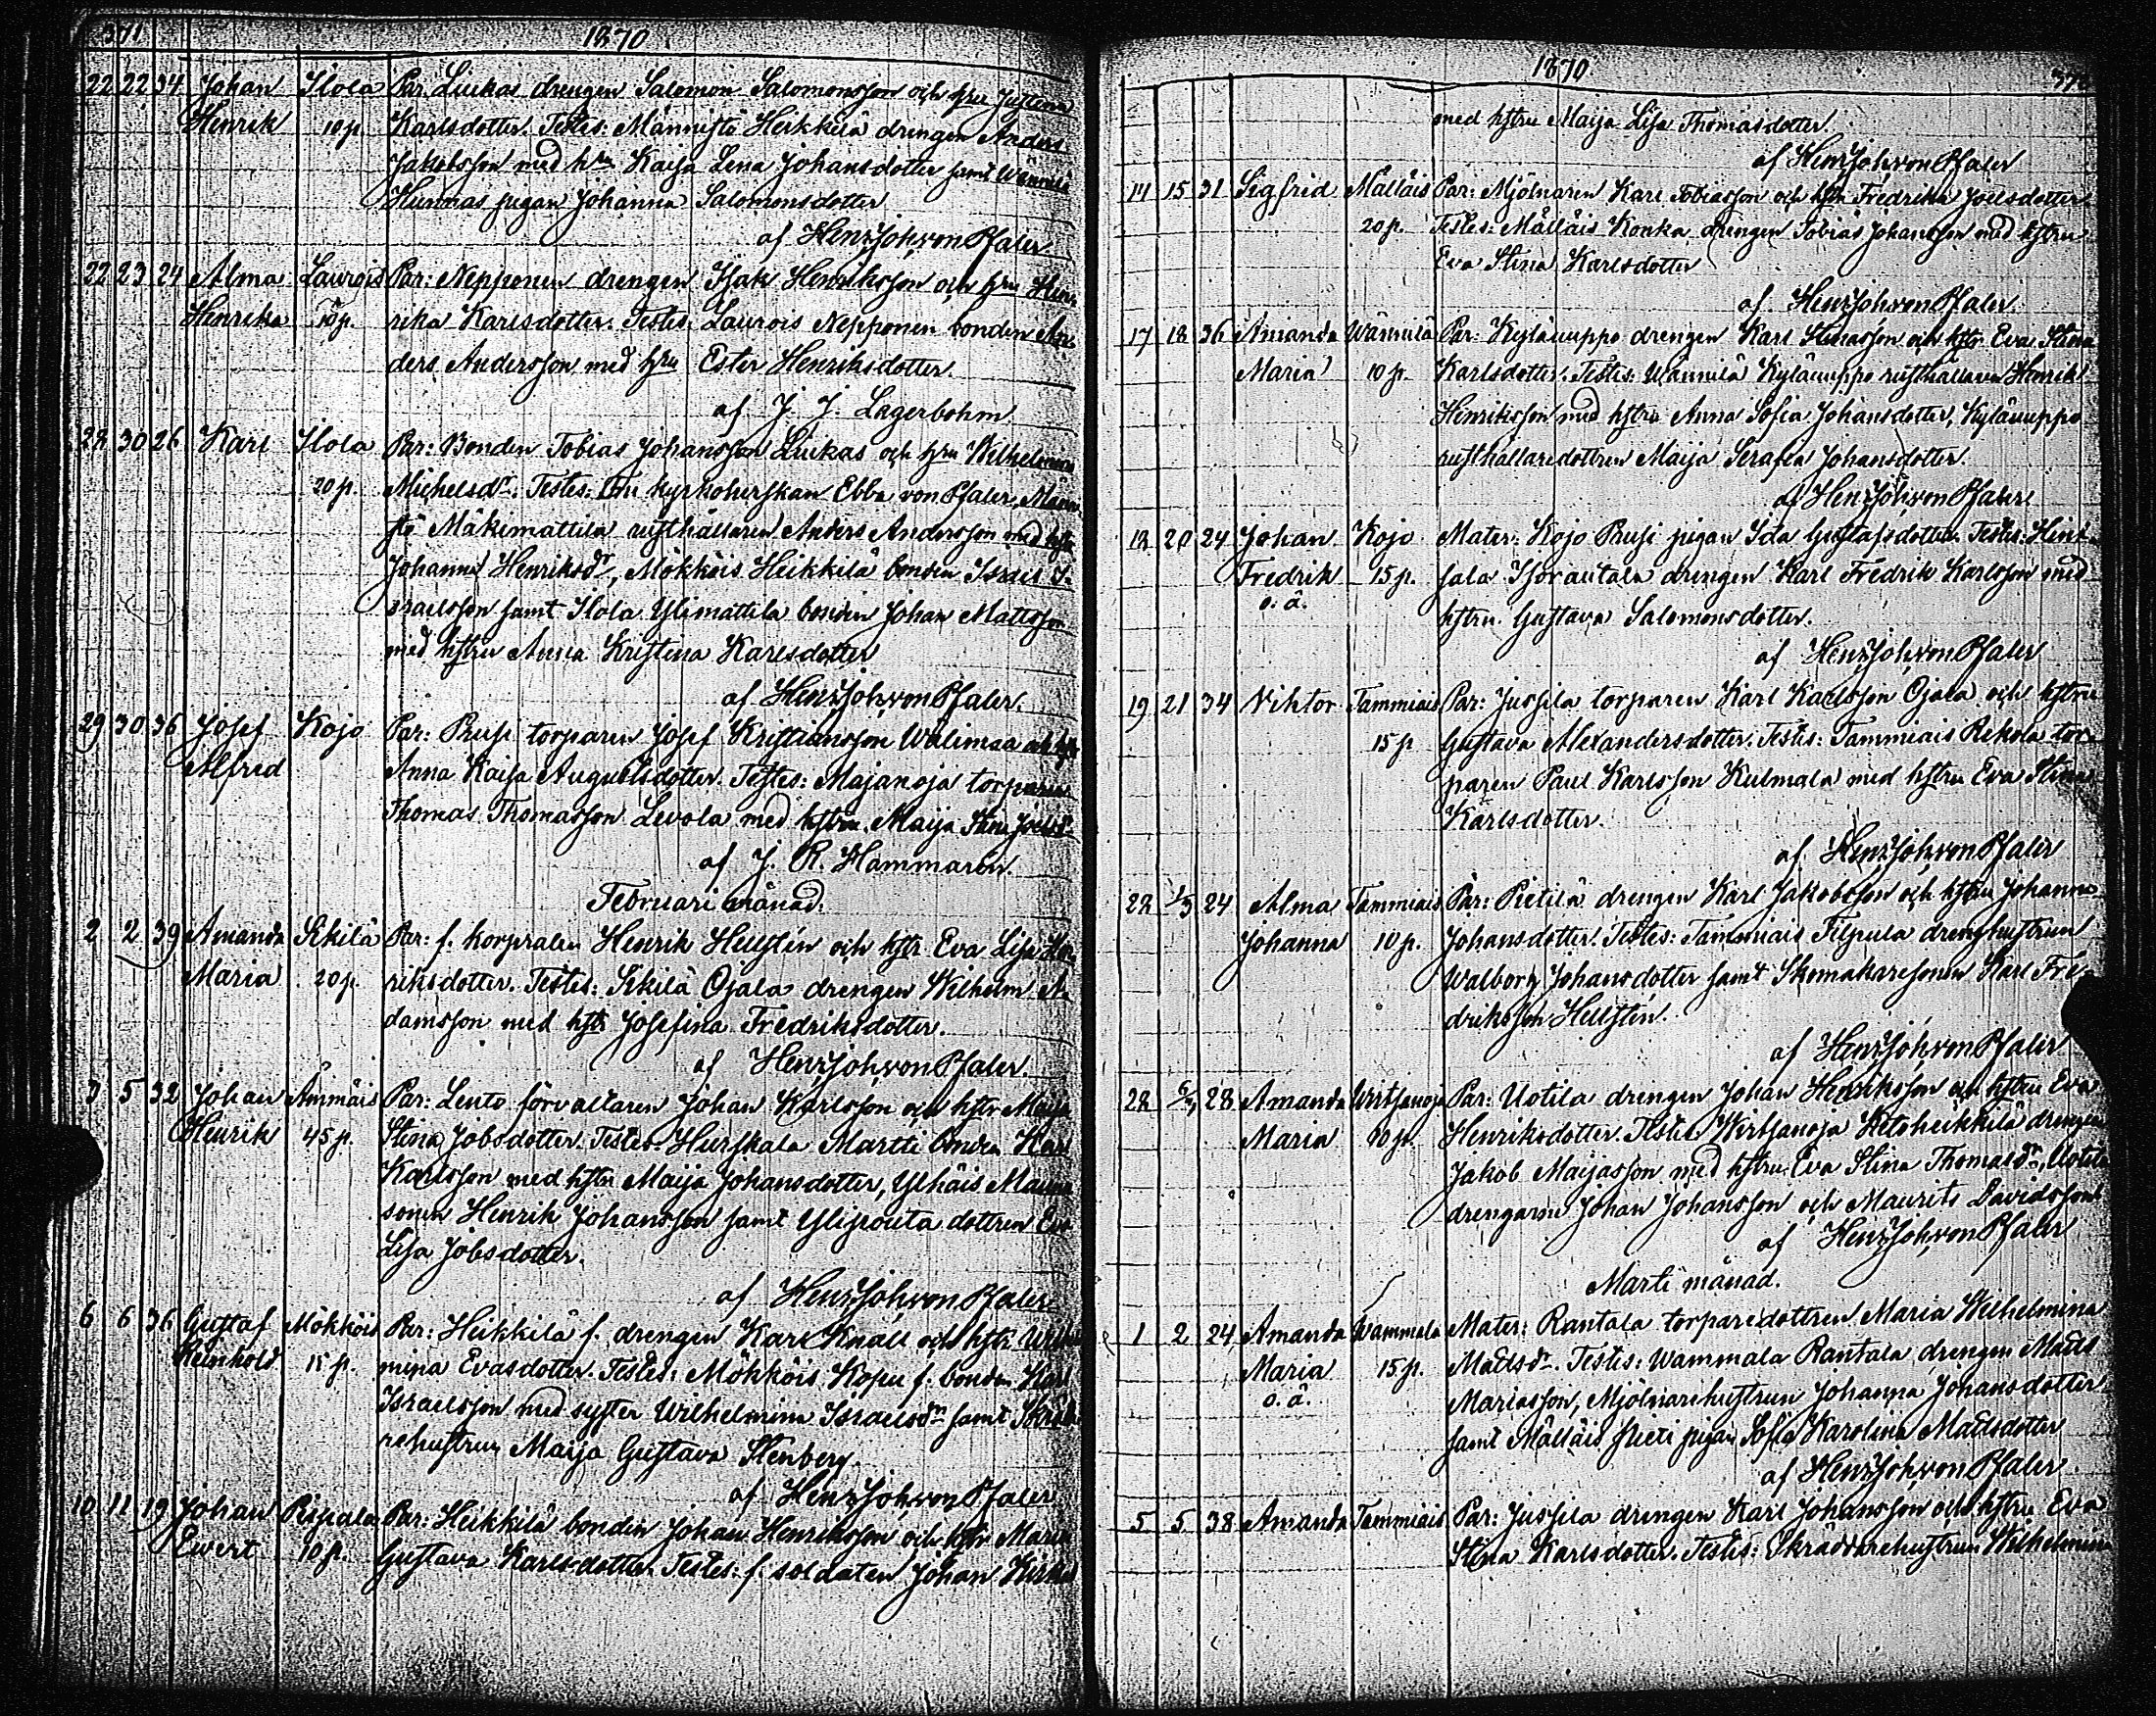 371
1870
22 22 34 Johan Ilola Par. Liukas drengen Salomon Salomonsson och hru Justina
Henrik 10 p. Karlsdotter. Testes: Männistö Heikkilä drengen Anders
Jakobsson med hru Kaisa Lena Johansdotter samt Wännilä
Hunnas pigan Johanna Salomonsdotter
af Henr Joh von Pfaler.
22 23 24 Alma Laurois Par: Nepponen drengen Isak Henriksson och hru Hen
Henrika 10 p. rika Karlsdotter. Testes: Laurois Nepponen bonden An
ders Andersson med hru Ester Henriksdotter.
af J. J. Lagerbohm.
28 30 26 Karl Ilola Par: Bonden Tobias Johansson Liukas och hru Wilhelmina
20 p. Michelsdr. Testes: Fru kyrkoherskan Ebba von Pfaler, Männi
stö Mäkimattila rusthållaren Anders Andersson med hstr
Johanna Henriksdr, Mökköis Heikkilä bonden Israel I-
sraelsson samt Ilola Ylimattila bonden Johan Mattsson
med hstru Anna Kristina Karlsdotter
af Henr Joh von Pfaler.
29 30 36 Josef Kojo Par: Prusi torparen Josef Kristiansson Wälimaa och hstr
Alfred Anna Kaisa Augustsdotter. Testes: Majanoja torparen
Thomas Thomasson Levola med hstru Maija Stina Joelsdr
af J. R. Hammarén.
Februari månad.
2 2 39 Amanda Sikilä Par: f. korpralen Henrik Hellstén och hstr Eva Lisa Hen
Maria 20 p. riksdotter. Testes: Sikilä Ojala drengen Wilhelm A-
damsson med hstr Josefina Fredriksdotter.
af Henr Joh von Pfaler.
3 5 32 Johan Ämmäis Par: Lento förvaltaren Johan Karlsson och hstr Maija
Henrik 45 p. Stina Jobsdotter. Testes: Hurskala Martti bonden Karl
Karlsson med hstru Maija Johansdotter, Ylhäis Maunu
sonen Henrik Johansson samt Ylipouta dottren Eva
Lisa Jobsdotter.
af Henr Joh von Pfaler
6 6 36 Gustaf Mökköis Par: Heikkilä f. drengen Karl Knall och hstr Wilhel
Reinhold 15 p. mina Evasdotter. Testes: Mökköis Kopu f. bonden Karl
Israelsson med syster Wilhelmina Israelsdr samt Skräda
rehustrun Maija Gustava Stenberg.
af Henr Joh von Pfaler
10 11 19 Johan Rispala Par: Heikkilä bonden Johan Henriksson och hstr Maria
Evert 10 p. Gustava Karlsdotter. Testes: f. soldaten Johan
1870
372
med hstru Maija Lisa Thomasdotter.
af Henr Joh von Pfaler
14 15 31 Sigfrid Mälläis Par: Mjölnaren Karl Tobiasson och hstr Fredrika Joelsdotter
20 p. Testes: Mälläis Konka drengen Tobias Johansson med hstru
Eva Stina Karlsdotter
af Henr Joh von Pfaler.
17 18 36 Amanda Wännilä Par: Kyläuuppo drengen Karl Stinasson och hstr Eva Stina
Maria 10 p. Karlsdotter. Testes: Wännilä Kyläuuppo rusthållaren Henrik
Henriksson med hstru Anna Sofia Johansdotter, Kyläuuppo
rusthållaredottren Maija Serafia Johansdotter.
af Henr Joh von Pfaler
18 20 24 Johan Kojo Mater: Kojo Prusi pigan Ida Gustafsdotter. Testes: Hink-
Fredrik 15 p. sala Isorautala drengen Karl Fredrik Karlsson med
o. ä. hstru Gustava Salomonsdotter.
af Henr Joh von Pfaler
19 21 34 Viktor Tammiais Par: Jussila torparen Karl Karlsson Ojala och hstru
15 p Gustava Alexandersdotter. Testes: Tammiais Rekola tor-
paren Paul Karlsson Kulmala med hstru Eva Stina
Karlsdotter.
af Henr Joh von Pfaler
28 1/3 24 Alma Tammiais Par: Pietilä drengen Karl Jakobsson och hstru Johanna
Johanna 10 p. Johansdotter. Testes: Tammiais Filpula drenghustrun
Walborg Johansdotter samt Skomakaresonen Karl Fre-
driksson Hellstén.
af Henr Joh von Pfaler
28 6/3 28 Amanda Wirtsanoja Par: Uotila drengen Johan Henriksson och hstru Eva
Maria 10 p. Henriksdotter. Testes: Wirtsanoja Ketoheikkilä drengen
Jakob Maijasson med hstru Eva Stina Thomasdr, Uotila
drengarne Johan Johansson och Maurits Davidsson
af Henr Joh von Pfaler
Marti månad.
1 2 24 Amanda Wammala Mater: Rantala torparedottren Maria Wilhelmina
Maria 15 p. Mattsdr. Testes: Wammala Rantala drengen Matts
o. ä. Mariasson, Mjölnarehustrun Johanna Johansdotter
samt Mälläis pigan Sofia Karolina Mattsdotter
af Henr Joh von Pfaler
5 5 38 Amanda Tammiais Par: Jussila drengen Karl Johansson och hstru Eva
Stina Karlsdotter. Testes: Skräddarehustrun Wilhelmina